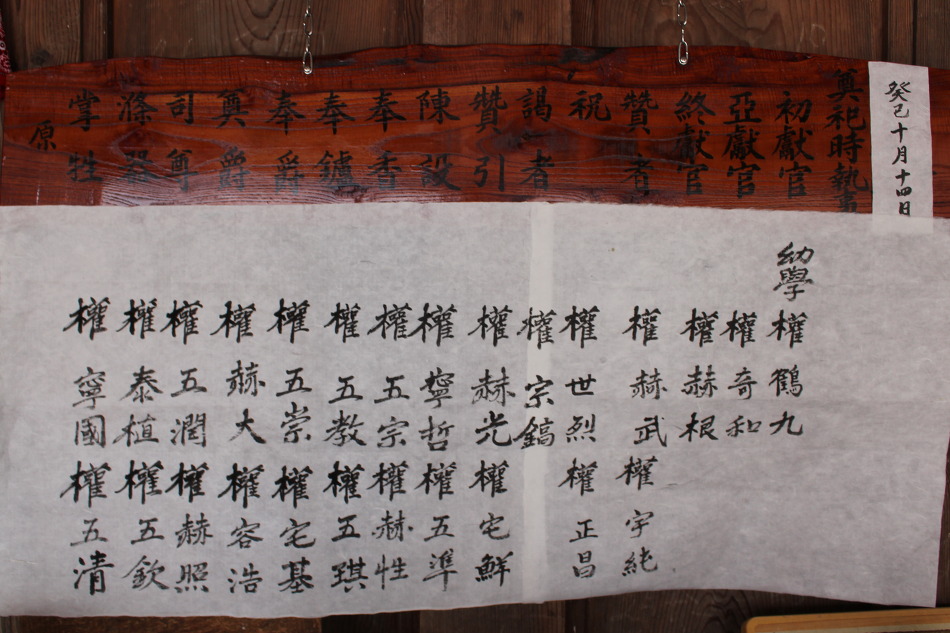 癸巳十月十四日
奠祀時執事
初獻官
亞獻官
終獻官
贊者
祝
謁者
贊引
陳設
奉香
奉鑪
奉爵
奠爵
司尊
滌器
掌牲
原
幼學
權鶴九
權奇和
權赫根
權赫武 權宇純
權世烈 權正昌
權宗鎬
權赫光 權宅鮮
權寧哲 權五準
權五宗 權赫性
權五教 權五琪
權五崇 權宅基
權赫大 權容浩
權五潤 權赫照
權泰植 權五欽
權寧國 權五清